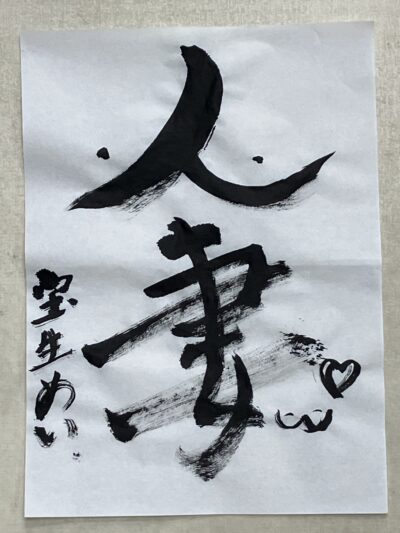 人妻
宝生めい